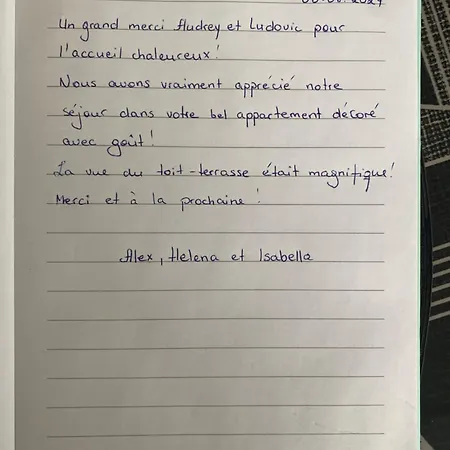 Un grand merci Audrey et Ludovic pour
l'accueil chaleureux!
Nous avons vraiment apprécié notre
séjour dans votre bel appartement décoré
avec goût!
La vue du toit-terrasse était magnifique!
Merci et à la prochaine!
Alex, Helena et Isabella